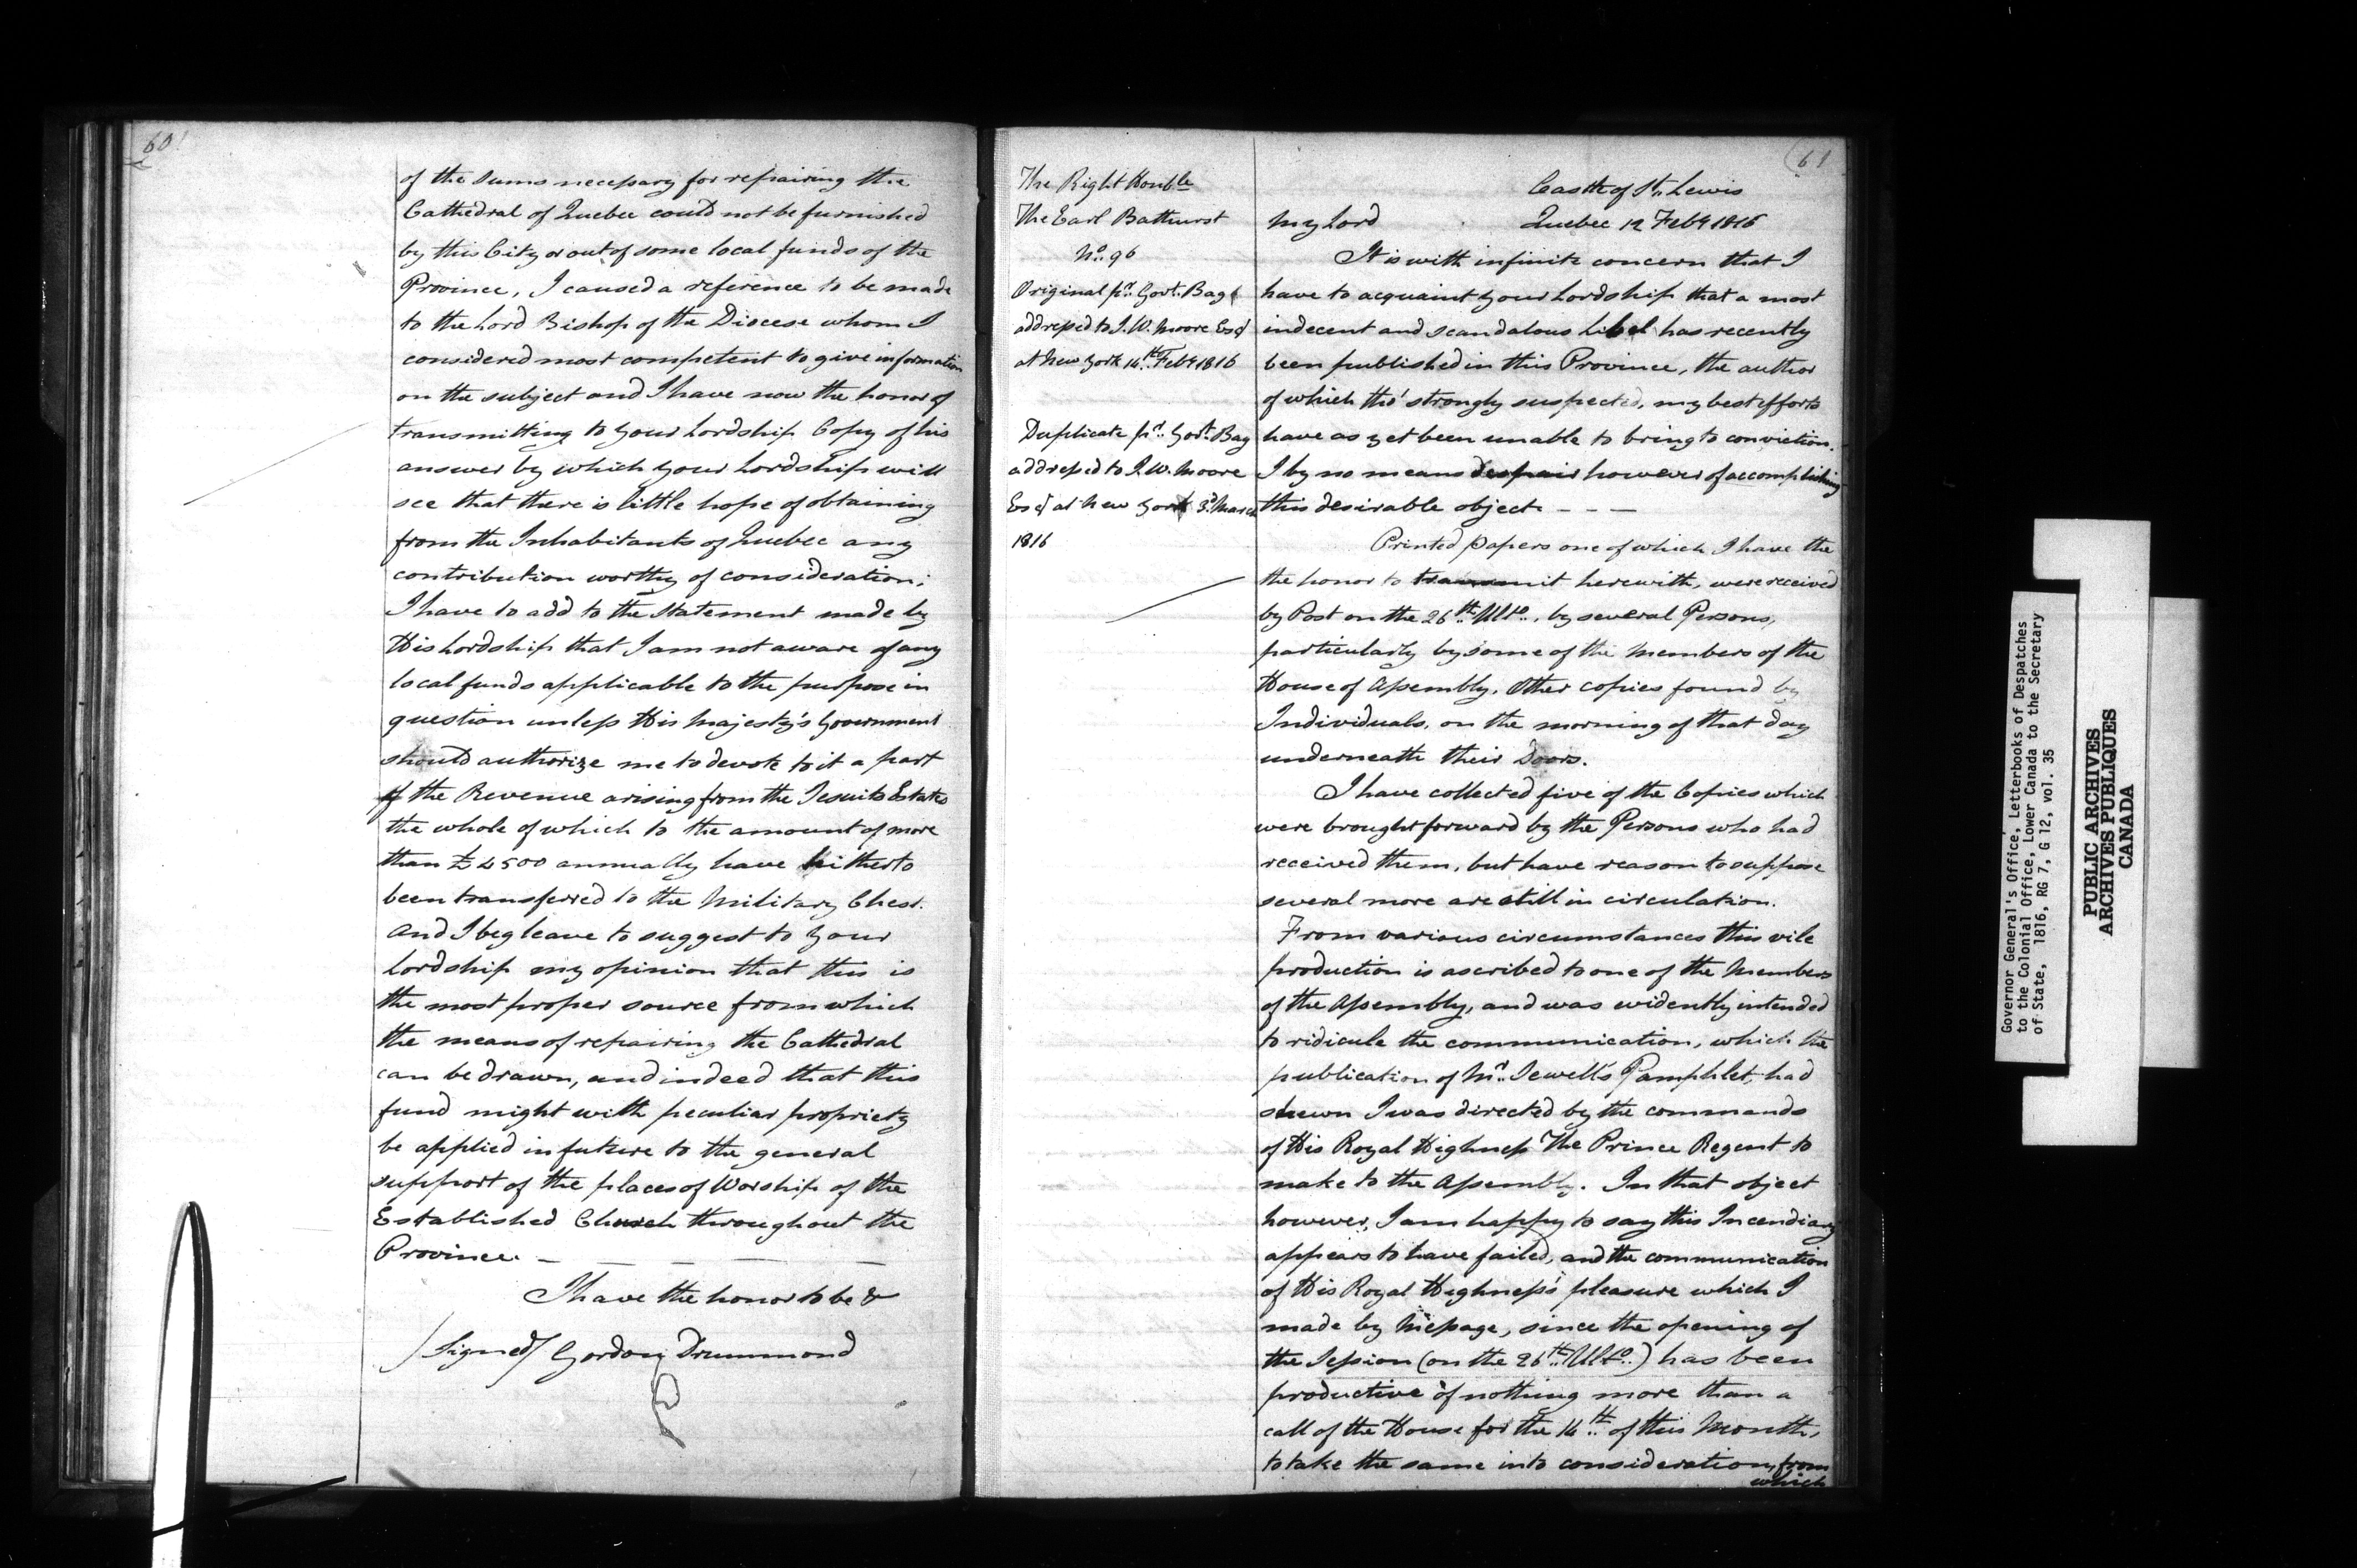 60
of the Sums necessary for repairing the
Cathedral of Quebec could not be furnished
by this City or out of some local funds of the
Province, I caused a reference to be made
to the Lord Bishop of the Diocese whom I
considered most competent to give information
on the subject and I have now the honor of
transmitting to your Lordship Copy of his
answer by which your Lordship will
see that there is little hope of obtaining
from the Inhabitants of Quebec any
contribution worthy of consideration;
I have to add to the Statement made by
His Lordship that I am not aware of any
local funds applicable to the purpose in
question unless His Majesty's Government
should authorize me to devote to it a part
of the Revenue arising from the Jesuits Estates
the whole of which to the amount of more
than £ 4500 annually have hitherto
been transferred to the Military Chest.
And I beg leave to suggest to your
Lordship my opinion that this is
the most proper source from which
the means of repairing the Cathedral
can be drawn, and indeed that this
fund might with peculiar propriety
be applied in future to the general
support of the places of Worship of the
Established Church throughout the
Province. —
I have the honor to be &
/Signed/ Gordon Drummond
61
The Right Honble
The Earl Bathurst
No. 96
Original pr. Govt. Bag
addressed to I. W. Moore Esqr
at New York 14th Feby 1816
Duplicate pr. Govt. Bag
addressed to I. W. Moore
Esqr at New York 3d March
1816
Castle of St. Lewis
My Lord Quebec 12 Feby 1816
It is with infinite concern that I
have to acquaint your Lordship that a most
indecent and scandalous Libel has recently
been published in this Province, the author
of which tho' strongly suspected, my best efforts
have as yet been unable to bring to conviction.
I by no means despair however of accomplishing
this desirable object. - - -
Printed Papers one of which I have the
the honor to transmit herewith, were received
by Post on the 26th Ulto., by several Persons,
particularly by some of the Members of the
House of Assembly. Other copies found by
Individuals, on the morning of that day
underneath their Doors.
I have collected five of the Copies which
were brought forward by the Persons who had
received them, but have reason to suppose
several more are still in circulation.
From various circumstances this vile
production is ascribed to one of the Members
of the Assembly, and was evidently intended
to ridicule the communication, which the
publication of Mr. Sewell's Pamphlet, had
shewn I was directed by the commands
of His Royal Highness The Prince Regent to
make to the Assembly. In that object
however, I am happy to say this Incendiary
appears to have failed, and the communication
of His Royal Highness's pleasure which I
made by Message, since the opening of
the Session (on the 26th Ulto.) has been
productive of nothing more than a
call of the House for the 14th of this Month,
to take the same into consideration, from
which
Governor General's Office, Letterbooks of Despatches
to the Colonial Office, Lower Canada to the Secretary
of State, 1816, RG 7, G 12, vol. 35
PUBLIC ARCHIVES
ARCHIVES PUBLIQUES
CANADA